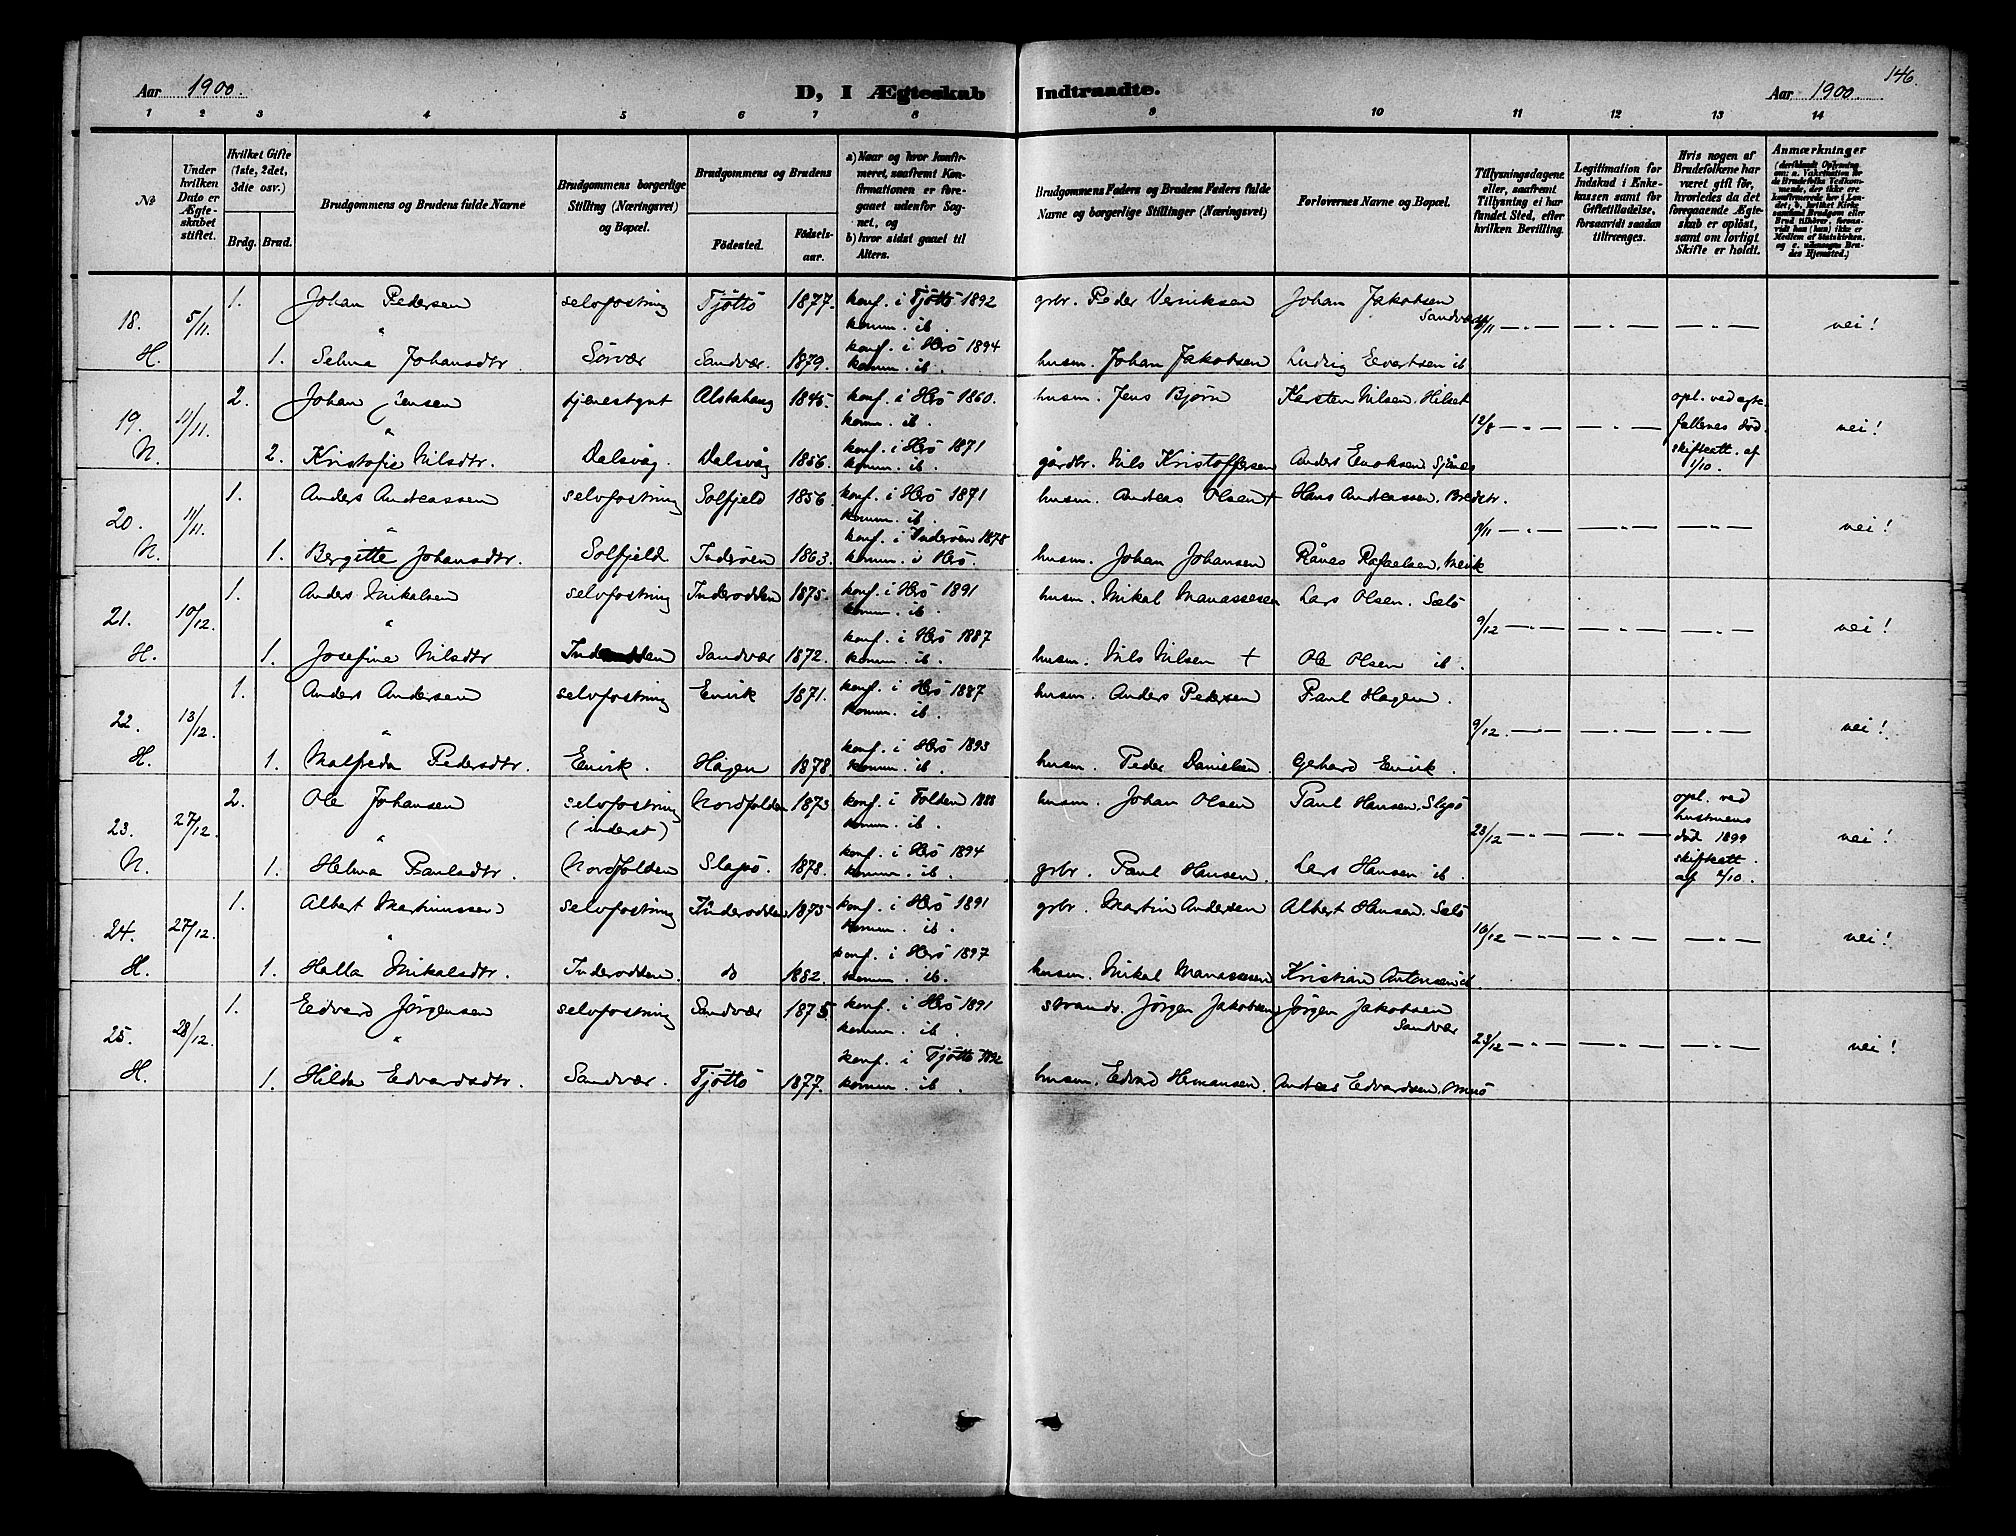 146.
Aar 1900. D, I Ægteskab Indtraadte. Aar 1900.
1 2 3 4 5 6 7 8 9 10 11 12 13 14
No
Under hvilken Dato er Ægteskabet stiftet.
Hvilket Gifte (1ste, 2det, 3die osv.)
Brdg. Brud.
Brudgommens og Brudens fulde Navne
Brudgommens borgerlige Stilling (Næringsvei) og Bopæl.
Brudgommens og Brudens
Fødested. Fødselsaar.
a) Naar og hvor konfirmeret, saafremt Konfirmationen er foregaaet udenfor Sognet, og
b) hvor sidst gaaet til Alters.
Brudgommens Faders og Brudens Faders fulde Navne og borgerlige Stillinger (Næringsvei)
Forlovernes Navne og Bopæl.
Tillysningsdagene eller, saafremt Tillysning ei har fundet Sted, efter hvilken Bevilling.
Legitimation for Indskud i Enkekassen samt for Giftetilladelse, forsaavidt saadan tiltrænges.
Hvis nogen af Brudefolkene har været gift før, hvorledes da det foregaaende Ægteskab er opløst, samt om lovligt Skifte er holdt.
Anmærkninger
18. 5/11. 1. Johan Pedersen selvfostring Tjøttö 1877. konf. i Tjøttö 1892 komm. ib. grbr. Peder Johan Jakobsen Sandvær /11 — " — — " — — " — nei!
H. 1. Selma Johansdtr. Sörvær Sandvær. 1879. konf. i Herö 1894 komm. ib. husm. Johan Jakobsen Ludvig Edvartsen ib
19. 11/11. 2. Johan Jensen tjenestgut Alstahaug 1845. konf. i Herö 1860. komm. ib. husm. Jens Bjørn Karsten Nilsen. 12/8 — " — — " — opl. ved egtefællenes død. skifteatt. af 1/10. nei!
N. 2. Kristofie Nilsdtr. Dalsvåg. Dalsvåg 1856. konf. i Herö 1871 komm. ib. gårdbr. Nils Kristoffersen Anders Enoksen
20. 11/11. 1. Anders Andreassen selvfostring Solfjeld 1856. konf. i Herö 1871 komm. ib. husm. Andreas Olsen + Hans Andreassen. /11 — " — — " — — " — nei!
N. 1. Bergitte Johansdtr. Solfjeld Inderøen 1863. konf. i Inderøen 1878 komm. i Herö. husm. Johan Johansen Rafaelsen.
21. 10/12. 1. Anders Mikalsen selvfostring Inderodden 1875. konf. i Herö 1891 komm. ib. husm. Mikal Manassesen Lars Olsen. Selö 9/12 — " — — " — — " — nei!
H. 1. Josefine Nilsdtr Inderodden Sandvær 1872. konf. i Herö 1887 komm. ib. husm. Nils Nilsen + Ole Olsen ib.
22. 13/12. 1. Anders Andersen selvfostring Envik 1871. konf. i Herö 1887 komm. ib. husm. Anders Pedersen Paul Hagen. 9/12. — " — — " — — " — nei!
H. 1. Malfreda Pedersdtr. Envik. Hagen 1878. konf. i Herö 1893 komm. ib. husm. Peder Danielsen. Gehard Envik.
23. 27/12. 2. Ole Johansen selvfostring (inderst) Nordfolden 1873. konf. i Folden 1888 komm. ib. husm. Johan Olsen Paul Hansen. Slapö 23/12 — " — — " — opl. ved hustruens død 1899 skifteatt. af 2/10. nei!
N. 1. Helma Paulsdtr. Nordfolden Slapö. 1878. konf. i Herö 1894 komm. ib. grbr. Paul Hansen. Lars Hansen ib.
24. 27/12. 1. Albert Martinussen selvfostring Inderodden 1875 konf. i Herö 1891 komm. ib. grbr. Martin Andersen Albert Hansen. Selö /12 — " — — " — — " — nei!
H. 1. Halla Mikalsdtr. Inderodden. do 1882. konf. i Herö 1897 komm. ib. husm. Mikal Manassesen Kristian Antonsen ib
25. 28/12. 1. Edvard Jørgensen selvfostring Sandvær 1875 konf. i Herö 1891 komm. ib. strands. Jørgen Jakobsen Jørgen Jakobsen Sandvær 23/12 — " — — " — — " — nei!
H. 1. Hilda Edvardsdtr. Sandvær. Tjøttö 1877. konf. i Tjøttö 1892 komm. ib. husm. Edvard Hermansen. Andreas Edvardsen.